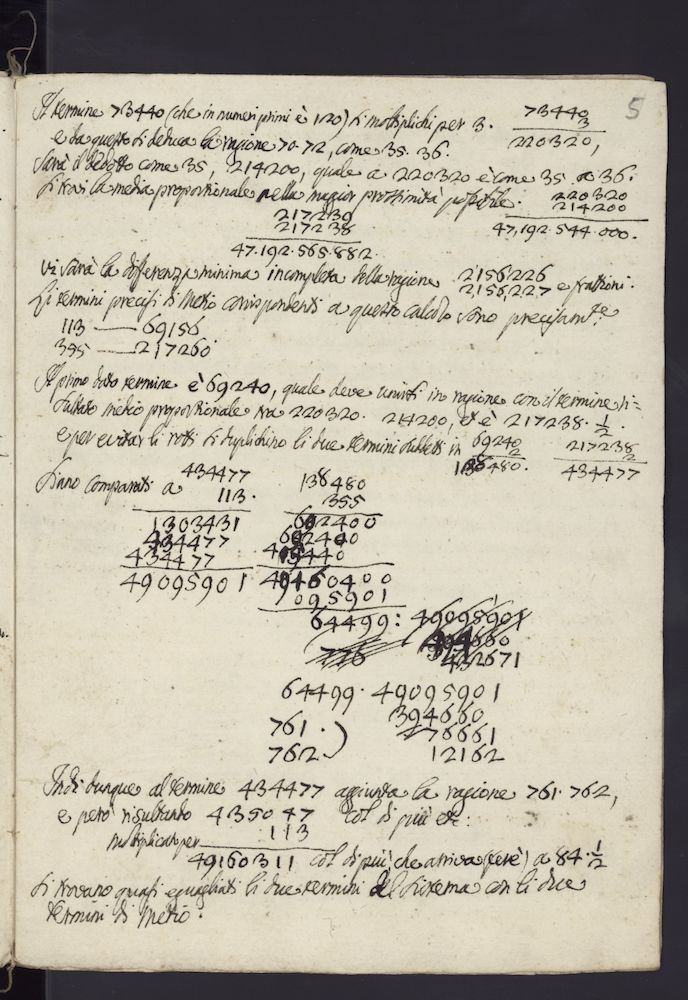 5
Il termine 73440 (che in numeri primi è 120) si moltiplichi per 3.
73440
3
220320,
e da questo si deduca la ragione 70. 72, come 35. 36.
Sarà il dedotto come 35, 214200, quale a 220320 è come 35 a 36.
Si trovi la media proporzionale nella maggior prossimità possibile.
220320
214200
47,192.544.000.
217239
217238
47.192.565.882.
Vi sarà la differenza minima incompleta della ragione 2156226
2156227 e frattioni.
Li termini precisi di Metio corrispondenti a questo calcolo sono precisamte
113 —— 69156
355 —— 217260
Il primo dato termine è 69240, quale deve unirsi in ragione con il termine ri=
sultato medio proporzionale tra 220320. 214200, et è 217238. 1/2.
e per evitar li rotti si duplichino li due termini suddetti in
69240
2
138480.
217238
2
434477
Siano comparati a 434477
113.
1303431
434477
434477
49095901
138480
355
692400
692400
415440
49160400
49095901
64499: 49095901
394660
776 432671
64499. 49095901
394660
761. 76661
762. 12162
Indi dunque al termine 434477 aggiunta la ragione 761. 762,
e però risultando 435047 col di più etc:
Moltiplicato per 113
49160311 col di più, che arriva (fere) a 84. 1/2
si trovano quasi eguagliati li due termini del sistema con li due
termini di Metio.